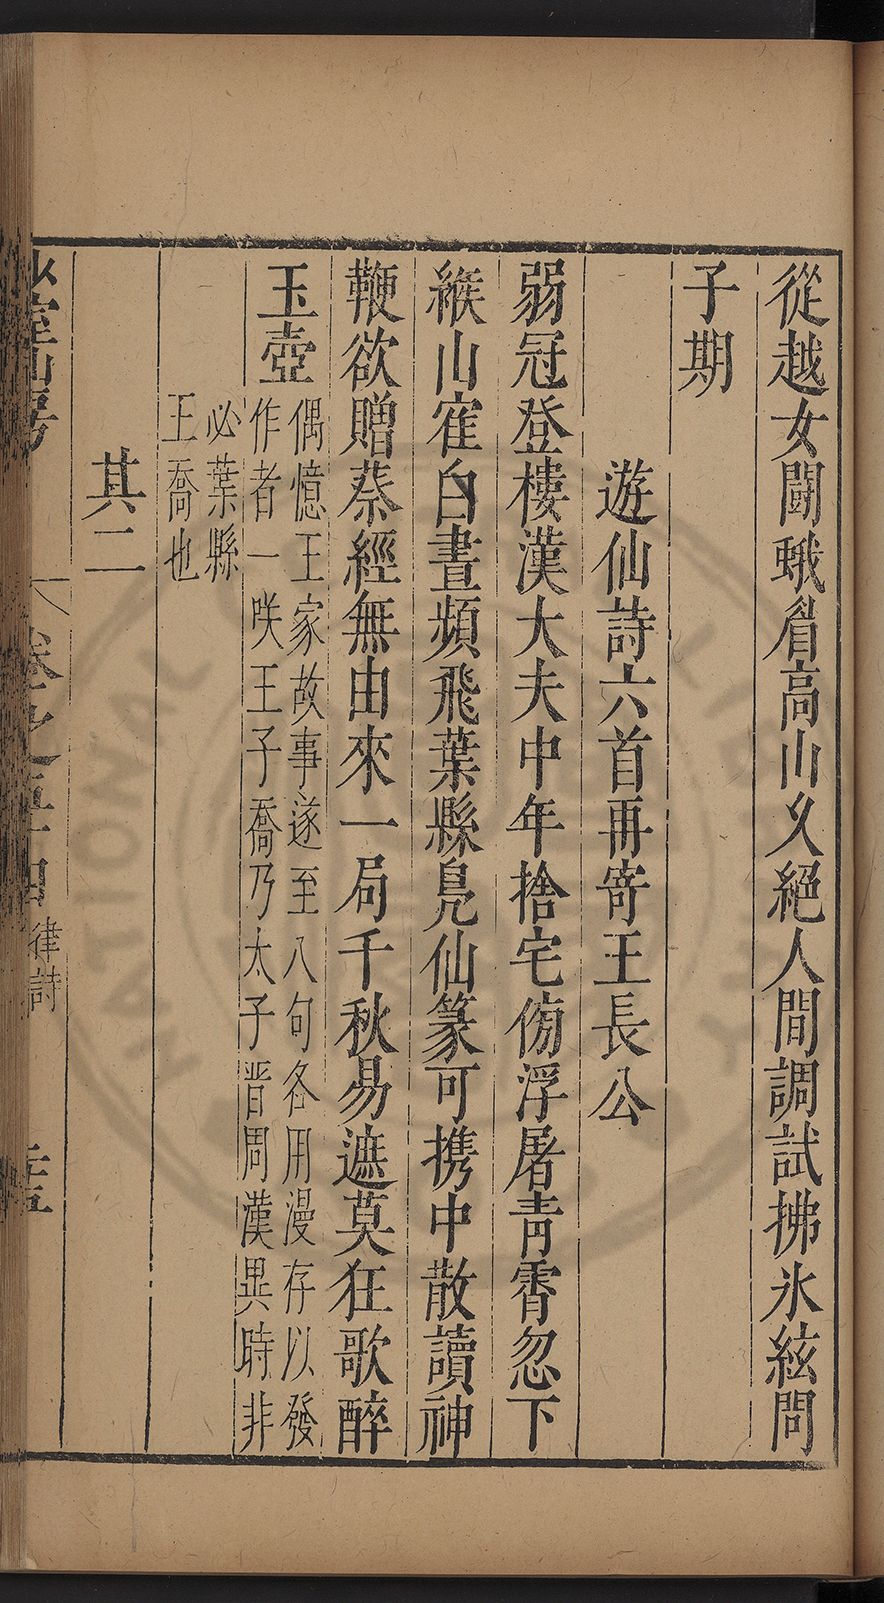 從越女鬪蛾眉高山久絕人間調試拂氷絃問
子期
遊仙詩六首再寄王長公
弱冠登樓漢大夫中年捨宅傍浮屠青霄忽下
緱山寉白晝頻飛葉縣鳧仙篆可携中散讀神
鞭欲贈蔡經無由來一局千秋易遮莫狂歌醉
玉壺
偶憶王家故事遂至八句各用漫存以發
作者一咲王子喬乃太子晋周漢異時非
必葉縣
王喬也
其二
少室山房
卷之五十四
律詩
NATIONAL